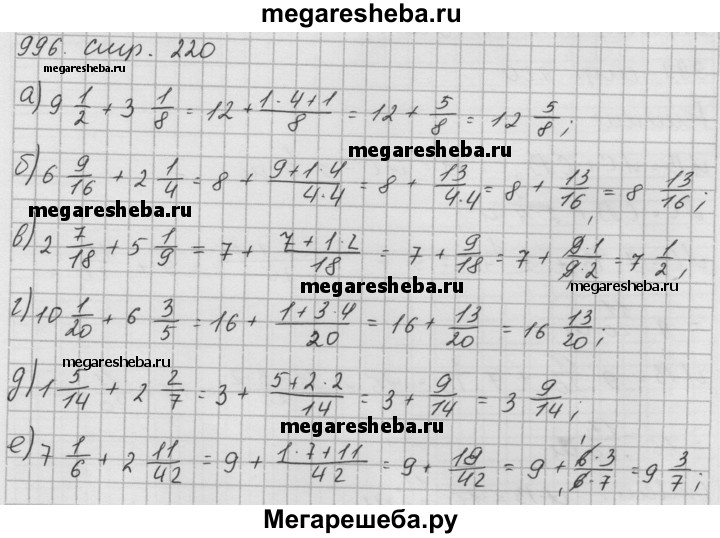 megaresheba.ru
996. стр. 220
megaresheba.ru
а) 9 1/2 + 3 1/8 = 12 + (1·4+1)/8 = 12 + 5/8 = 12 5/8;
megaresheba.ru
б) 6 9/16 + 2 1/4 = 8 + (9+1·4)/(4·4) = 8 + 13/(4·4) = 8 + 13/16 = 8 13/16;
megaresheba.ru
в) 2 7/18 + 5 1/9 = 7 + (7+1·2)/18 = 7 + 9/18 = 7 + (9·1)/(9·2) = 7 1/2;
megaresheba.ru megaresheba.ru
г) 10 1/20 + 6 3/5 = 16 + (1+3·4)/20 = 16 + 13/20 = 16 13/20;
megaresheba.ru
д) 1 5/14 + 2 2/7 = 3 + (5+2·2)/14 = 3 + 9/14 = 3 9/14;
megaresheba.ru
е) 7 1/6 + 2 11/42 = 9 + (1·7+11)/42 = 9 + 18/42 = 9 + (6·3)/(6·7) = 9 3/7;
Мегарешеба.ру